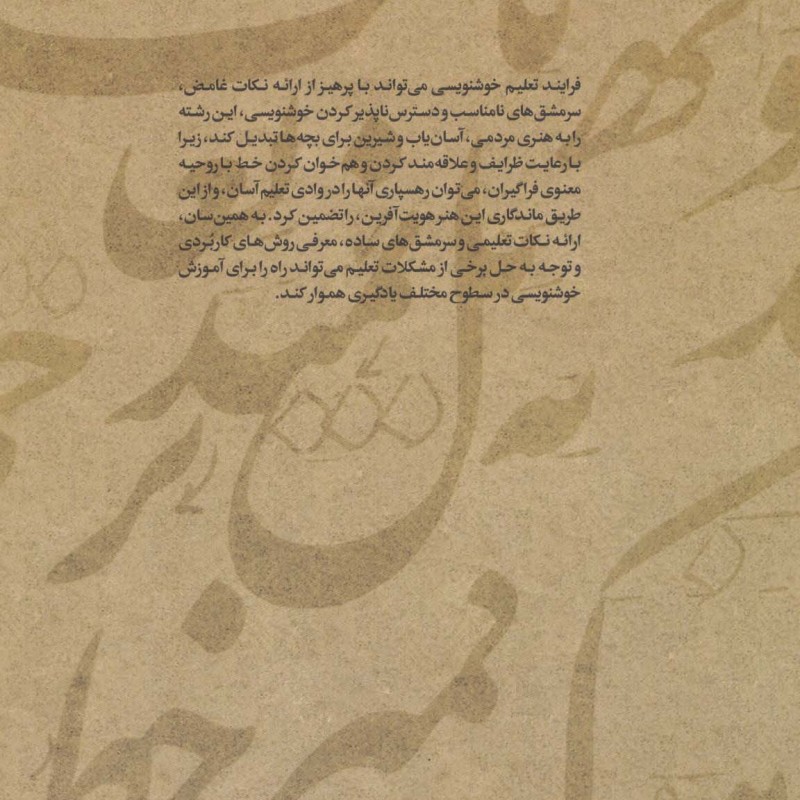 فرایند تعلیم خوشنویسی می‌تواند با پرهیز از ارائه نکات غامض،
سرمشق‌های نامناسب و دسترس‌ناپذیر کردن خوشنویسی، این رشته
را به هنری مردمی، آسان‌یاب و شیرین برای بچه‌ها تبدیل کند، زیرا
با رعایت ظرایف و علاقه‌مند کردن و هم‌خوان کردن خط با روحیه
معنوی فراگیران، می‌توان رهسپاری آنها را در وادی تعلیم آسان، و از این
طریق ماندگاری این هنر هویت‌آفرین، را تضمین کرد. به همین‌سان،
ارائه نکات تعلیمی و سرمشق‌های ساده، معرفی روش‌های کاربُردی
و توجه به حل برخی از مشکلات تعلیم می‌تواند راه را برای آموزش
خوشنویسی در سطوح مختلف یادگیری هموار کند.